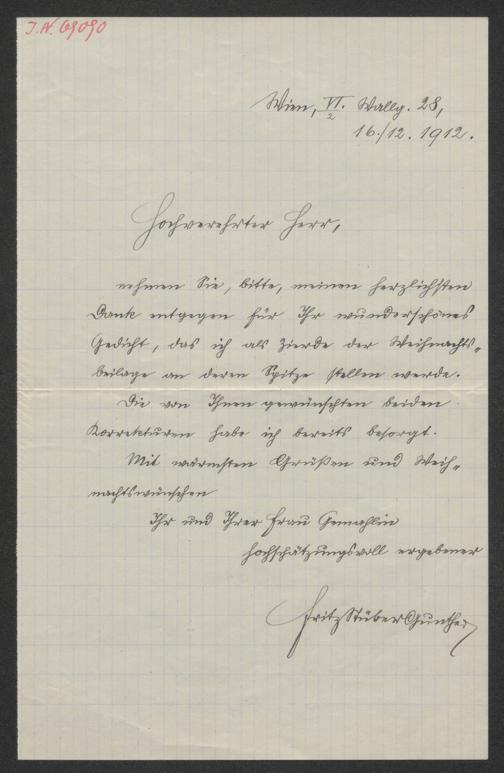 J.N. 69090
Wien, VI./2 Wallg. 28,
16./12. 1912.
Hochverehrter Herr,
nehmen Sie, bitte, meinen herzlichsten
Dank entgegen für Ihr wunderschönes
Gedicht, das ich als Zierde der Weihnachts-
beilage an deren Spitze stellen werde.
Die von Ihnen gewünschten beiden
Korrekturen habe ich bereits besorgt.
Mit wärmsten Grüßen und Weih-
nachtswünschen
Ihr und Ihrer Frau Gemahlin
hochschätzungsvoll ergebener
Fritz Stüber Gunther